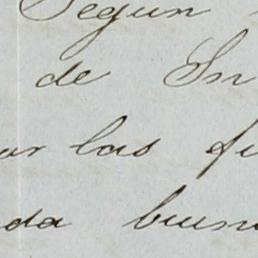 Segun
de Sn
ar las fu
da buen